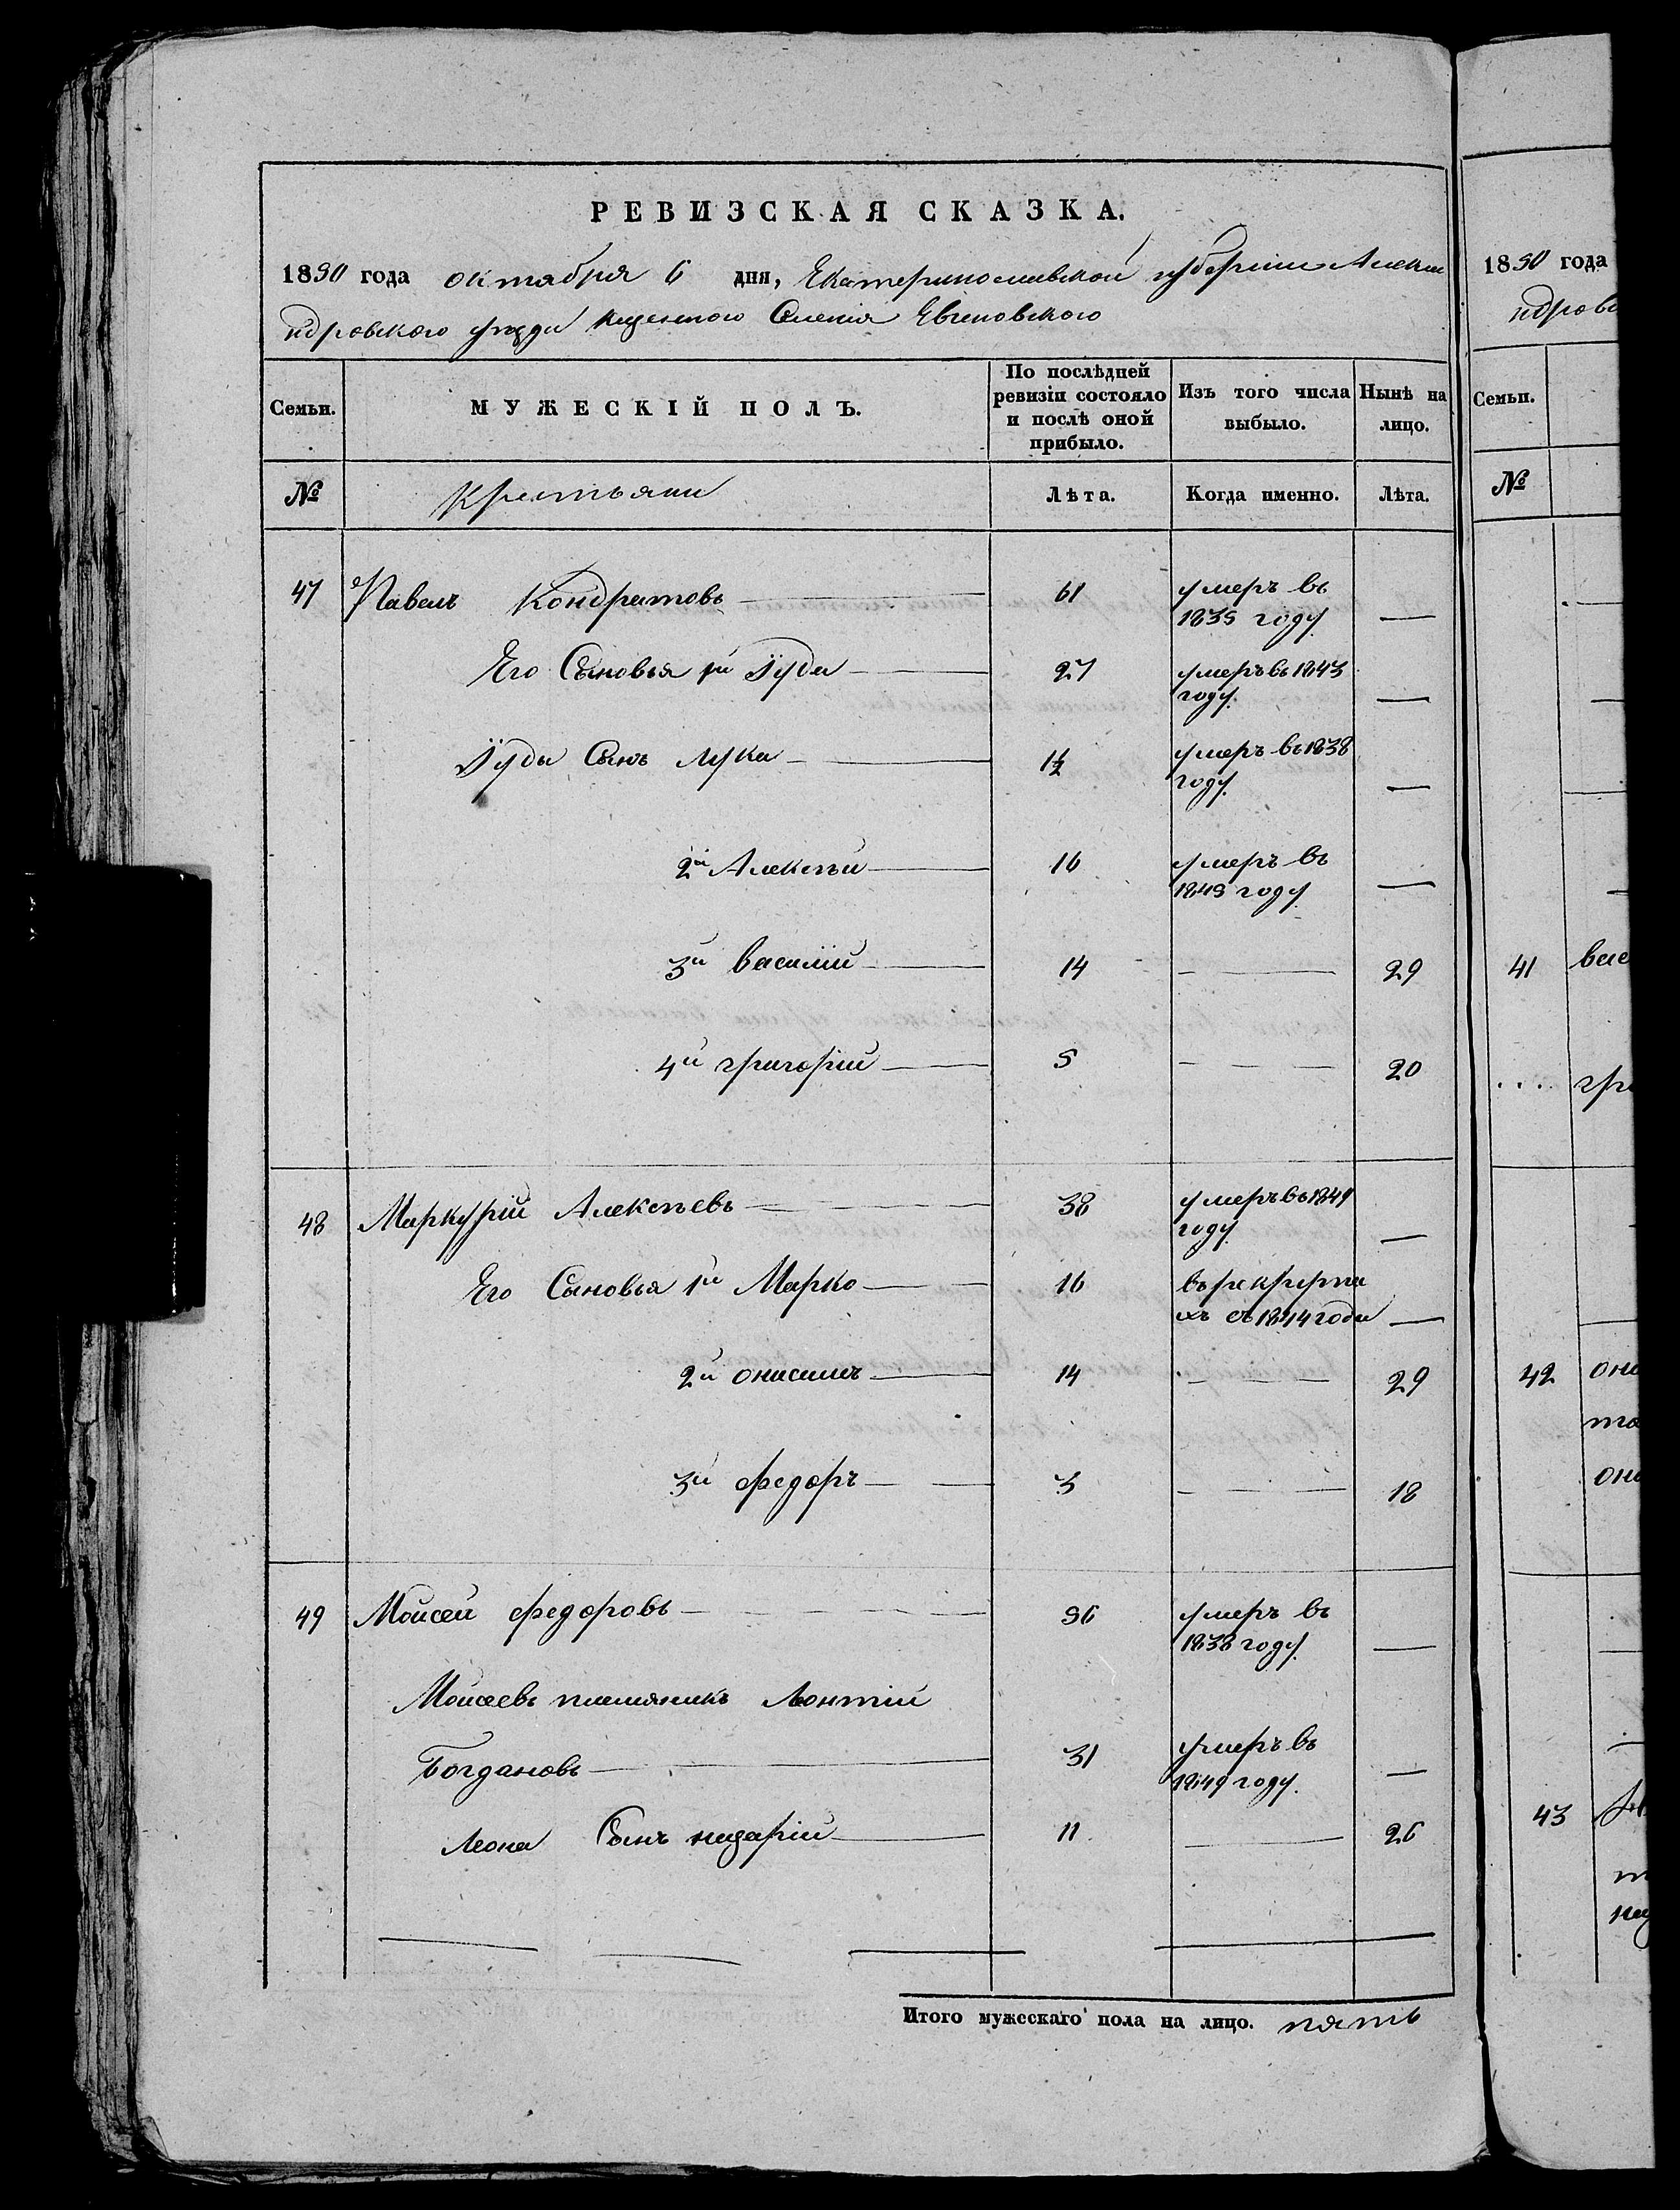 РЕВИЗСКАЯ СКАЗКА.
1850 года октября 6 дня, Екатеринославской губернии Алекса
ндровского уезда казенного Селенія
Семьи.
МУЖЕСКІЙ ПОЛЪ.
По послѣдней ревизіи состояло и послѣ оной прибыло.
Изъ того числа выбыло.
Нынѣ на лицо.
№ крестьяни Лѣта. Когда именно. Лѣта.
47 Павелъ Кондратовъ — 61 умеръ въ
1835 году —
Его Сыновья 1й Іуда — 27 умеръ въ 1843
году —
Іуды Сынъ лука — 1½ умеръ въ 1838
году —
2й Алексѣй — 16 умеръ въ
1845 году —
3й василій — 14 — 29
4й григорій — 5 — 20
48 Маркурій Алексѣевъ — 38 умеръ въ 1849
году —
Его Сыновья 1й Марко — 16 въ рекрута
хъ съ 1844 года —
2й онисимъ — 14 — 29
3й федоръ — 3 — 18
49 Мойсей федоровъ — 56 умеръ въ
1838 году —
Мойсеевъ племяникъ Леонтій
Богдановъ — 31 умеръ въ
1849 году —
Леона Сынъ назарій — 11 — 26
Итого мужескаго пола на лицо. пять
1850 года
ндровс
Семьи.
№
41 вас
гри
42 они
43